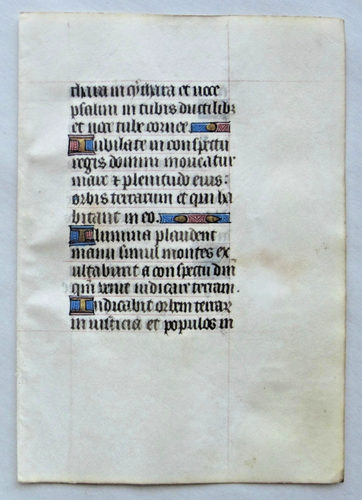 thara in cythara et uoce
psalmi in tubis ductilibz
et uoce tube cornee
Iubilate in conspectu
regis domini moueatur
mare z plenitudo eius:
orbis terrarum et qui ha
bitant in eo.
Flumina plaudent
manu simul montes ex
ultabunt a conspectu dni
qui uenit iudicare terram.
Iudicabit orbem terrar
in iusticia et populos in